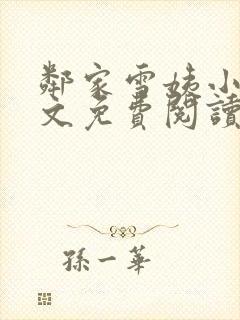 鄰家雪姨小
文免費閱讀
孫一華